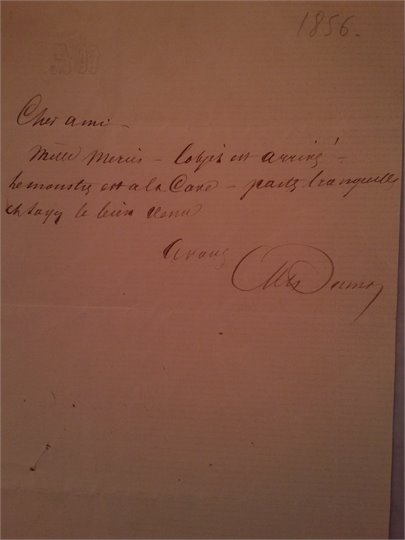 1856.
Cher ami –
Mille Mercis – l'objet est arrivé –
le monstre est à la Cave – partez tranquille
et soyez le bien venu
à vous
Alex Dumas